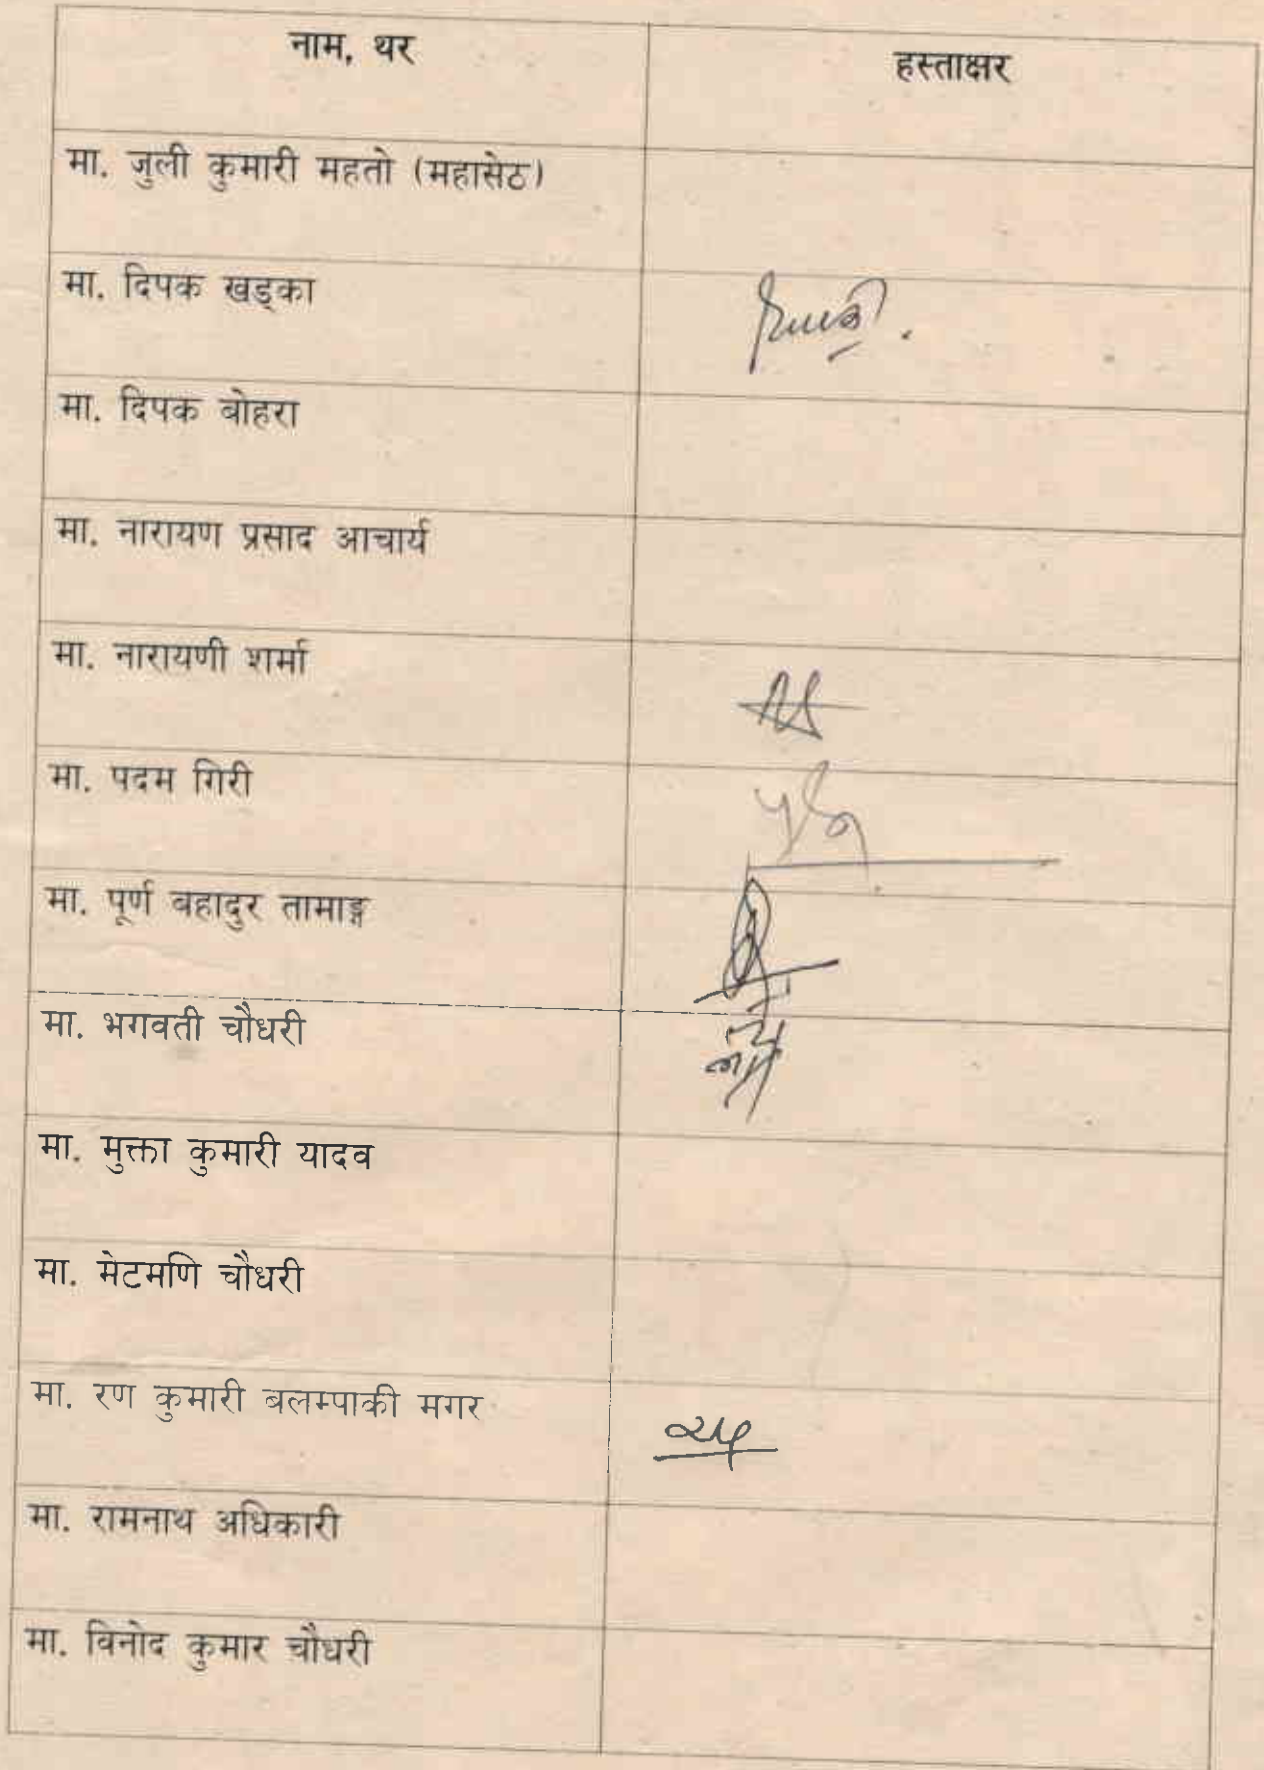 नाम, थर
हस्ताक्षर
मा. जुली कुमारी महतो (महासेठ)
मा. दिपक खड्का
मा. दिपक बोहरा
मा. नारायण प्रसाद आचार्य
मा. नारायणी शर्मा
मा. पदम गिरी
मा. पूर्ण बहादुर तामाङ्ग
मा. भगवती चौधरी
मा. मुक्ता कुमारी यादव
मा. मेटमणि चौधरी
मा. रण कुमारी बलम्पाकी मगर
मा. रामनाथ अधिकारी
मा. विनोद कुमार चौधरी